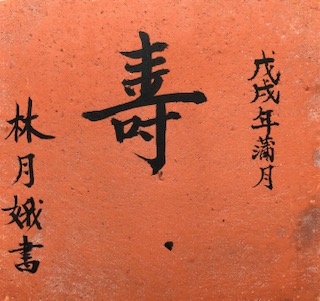 戊戌年蒲月
壽
林月娥書